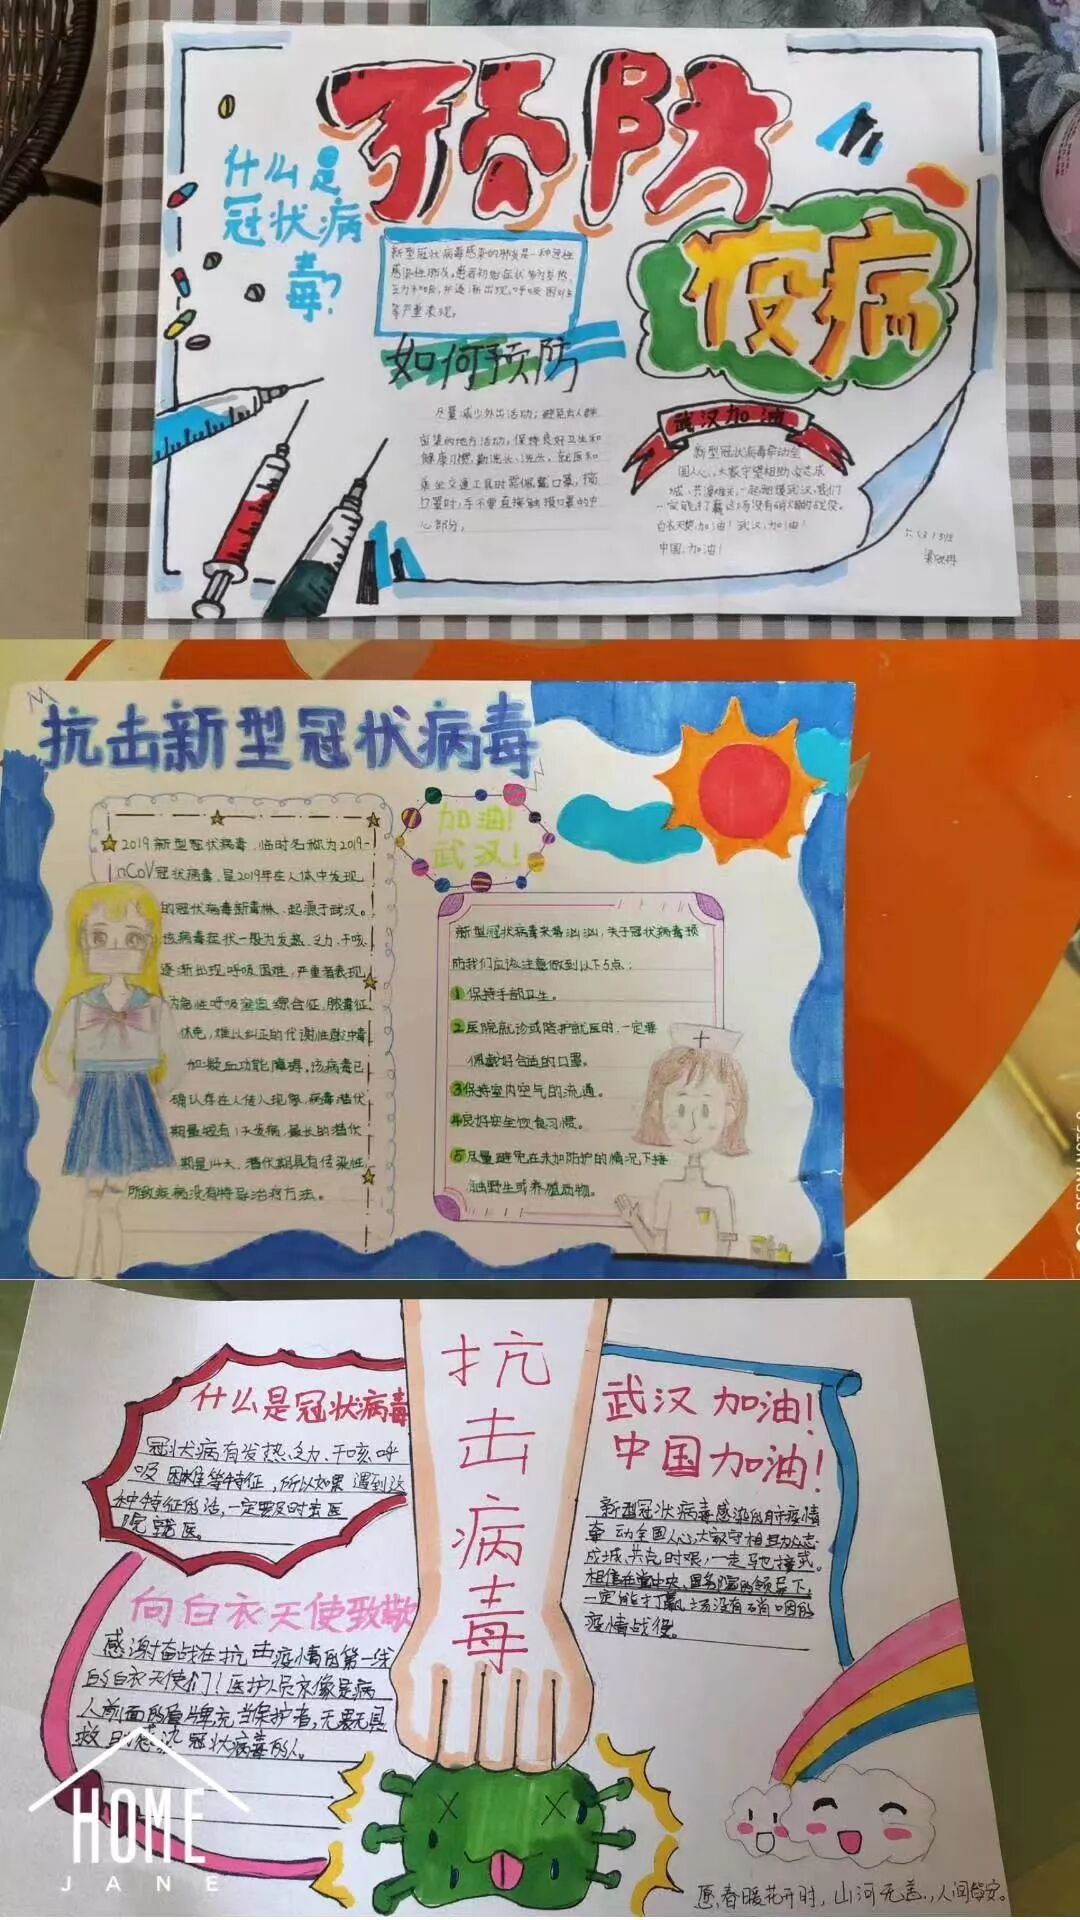 预防
疫病
什么是
冠状病
毒?
新型冠状病毒感染的肺炎是一种急性
感染性肺炎,患者初始症状多为发热、
乏力和干咳,并逐渐出现呼吸困难
等严重表现。
如何预防
尽量减少外出活动;避免去人群
密集的地方活动,保持良好卫生和
健康习惯,勤洗手、洗头,就医和
乘坐交通工具时要佩戴口罩,摘
口罩时,手不要直接触摸口罩的中
心部分。
武汉加油
新型冠状病毒牵动全
国人心,大家守望相助、众志成
城、共渡难关,一起驰援武汉,我们
一定能打赢这场没有硝烟的战役。
白衣天使,加油!武汉,加油!
中国,加油!
抗击新型冠状病毒
加油!
武汉!
2019新型冠状病毒,临时名称为2019-
nCoV冠状病毒,是2019年在人体中发现
的冠状病毒新毒株、起源于武汉。
该病毒症状一般为发热、乏力、干咳
逐渐出现呼吸困难,严重者表现
为急性呼吸窘迫综合征、脓毒症
休克,难以纠正的代谢性酸中毒
和凝血功能障碍。该病毒已
确认存在人传人现象,病毒潜伏
期最短有1天发病,最长的潜伏
期是14天,潜伏期具有传染性,
所致疾病没有特异治疗方法。
新型冠状病毒来势汹汹,关于冠状病毒预
防我们应该注意做到以下5点:
1 保持手部卫生。
2 医院就诊或陪护就医时,一定要
佩戴好合适的口罩。
3 保持室内空气的流通。
4 良好安全饮食习惯。
5 尽量避免在未加防护的情况下接
触野生或养殖动物。
抗
击
病
毒
什么是冠状病毒
冠状病有发热、乏力、干咳、呼
吸困难等特征,所以如果遇到这
种特征的话,一定要及时去医
院就医。
向白衣天使致敬
感谢奋战在抗击疫情的第一线
的白衣天使们!医护人员永像是病
人前面的盾牌,充当保护者,无畏无惧
救助感染冠状病毒的人。
武汉加油!
中国加油!
新型冠状病毒感染的肺疫情
牵动全国人心,大家守相助、众志
成城、共克时艰,一走驰援武。
相信在党中央、国务院的领导下,
一定能打赢场没有硝烟的
疫情战役。
愿,春暖花开时,山河无恙,人间皆安。
HOME
JANE